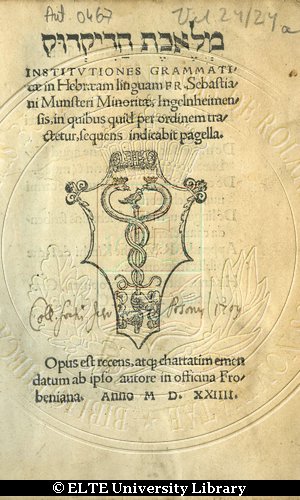 Ant. 0467
מלאכת הדיקדוק
INSTITVTIONES GRAMMATI-
cæ in Hebræam linguam FR. Sebastia
ni Munsteri Minoritæ, Ingelnheimen-
sis, in quibus quid per ordinem tra-
ctetur, sequens indicabit pagella.
Coll. Posony
Opus est recens, atq; chartatim emen
datum ab ipso autore in officina Fro-
beniana. ANNO M D. XXIIII.
© ELTE University Library